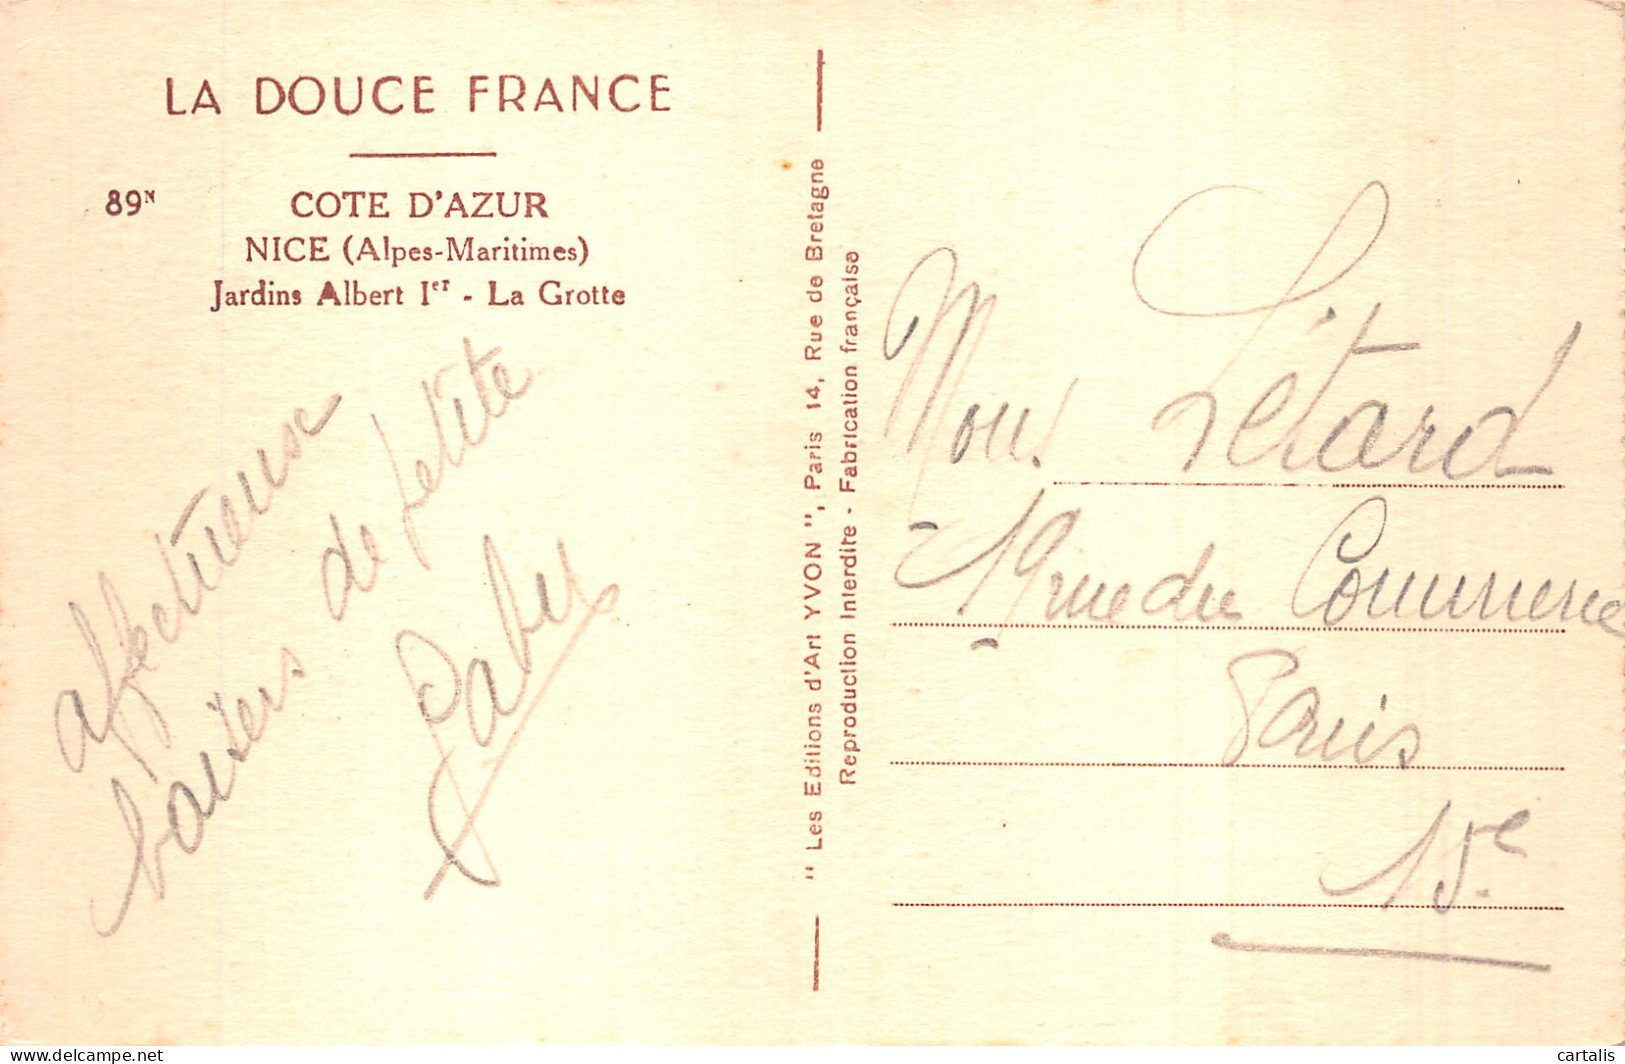 LA DOUCE FRANCE
89ᴺ
COTE D'AZUR
NICE (Alpes-Maritimes)
Jardins Albert Iᵉʳ - La Grotte
affectueux
baisers de petite
Gaby
" Les Editions d'Art YVON ", Paris 14, Rue de Bretagne
Reproduction Interdite - Fabrication française
Mons. Létard
19 rue du Commerce
Paris
15e
cartalis